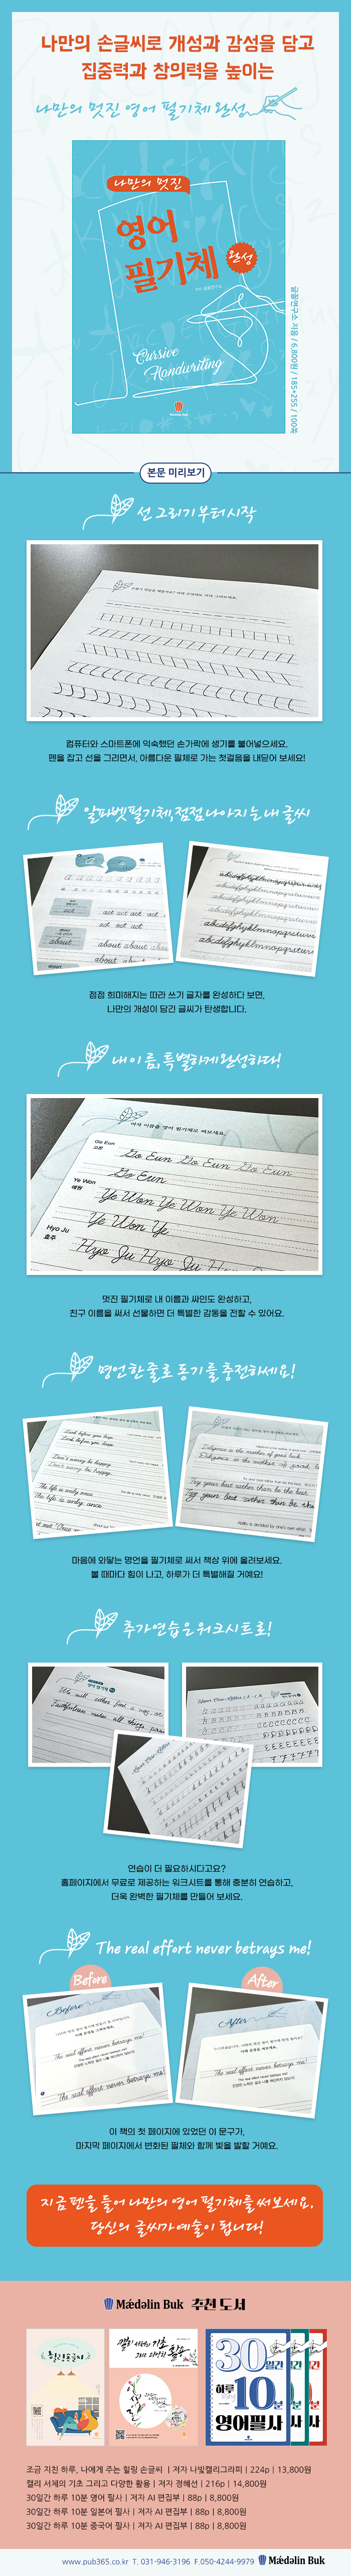 나만의 손글씨로 개성과 감성을 담고
집중력과 창의력을 높이는
나만의 멋진 영어 필기체 완성
나만의 멋진
영어
필기체
완성
Cursive
Handwriting
글꼴연구소 지음 / 6,800원 / 185*255 / 100쪽
본문 미리보기
선 그리기부터 시작
컴퓨터와 스마트폰에 익숙했던 손가락에 생기를 불어넣으세요.
펜을 잡고 선을 그리면서, 아름다운 필체로 가는 첫걸음을 내딛어 보세요!
알파벳 필기체, 점점 나아지는 내 글씨
act
act act act act
act act act
about
about about
about
점점 희미해지는 따라 쓰기 글자를 완성하다 보면,
나만의 개성이 담긴 글씨가 탄생합니다.
내 이름, 특별하게 완성하다!
여자 이름을 영어 필기체로 써보세요.
Go Eun
고은
Go Eun Go Eun Go Eun
Go Eun
Ye Won
예원
Ye Won Ye Won Ye Won
Ye Won Ye
Hyo Ju
효주
Hyo Ju Hyo Ju
멋진 필기체로 내 이름과 싸인도 완성하고,
친구 이름을 써서 선물하면 더 특별한 감동을 전할 수 있어요.
명언 한 줄로 동기를 충전하세요!
Look before you leap.
Look before you leap.
Don't worry be happy.
Don't worry be happy.
The life is only once.
The life is only once.
Diligence is the mother of good luck.
Diligence is the mother of good l
Try your best rather than be the best.
Try your best rather than be the
Ability is decided by one's own effort.
마음에 와닿는 명언을 필기체로 써서 책상 위에 올려보세요.
볼 때마다 힘이 나고, 하루가 더 특별해질 거예요!
추가 연습은 워크시트로!
영어 필기체
We will either find a way or
Faithfulness makes all things pos
Lower Case Letters
연습이 더 필요하시다고요?
홈페이지에서 무료로 제공하는 워크시트를 통해 충분히 연습하고,
더욱 완벽한 필기체를 만들어 보세요.
The real effort never betrays me!
Before
After
Before
The real effort never betrays me!
The real effort never betrays me!
The real effort never betrays me!
After
The real effort never betrays me!
The real effort never betrays me!
이 책의 첫 페이지에 있었던 이 문구가,
마지막 페이지에서 변화된 필체와 함께 빛을 발할 거예요.
지금 펜을 들어 나만의 영어 필기체를 써보세요.
당신의 글씨가 예술이 됩니다!
Mædəlin Buk 추천 도서
힐링 손글씨
캘리 서체의 기초
그리고 다양한 활용
30일간
하루 10분
영어필사
조금 지친 하루, 나에게 주는 힐링 손글씨 | 저자 나빛캘리그라피 | 224p | 13,800원
캘리 서체의 기초 그리고 다양한 활용 | 저자 정혜선 | 216p | 14,800원
30일간 하루 10분 영어 필사 | 저자 AI 편집부 | 88p | 8,800원
30일간 하루 10분 일본어 필사 | 저자 AI 편집부 | 88p | 8,800원
30일간 하루 10분 중국어 필사 | 저자 AI 편집부 | 88p | 8,800원
www.pub365.co.kr T. 031-946-3196 F.050-4244-9979 Mædəlin Buk